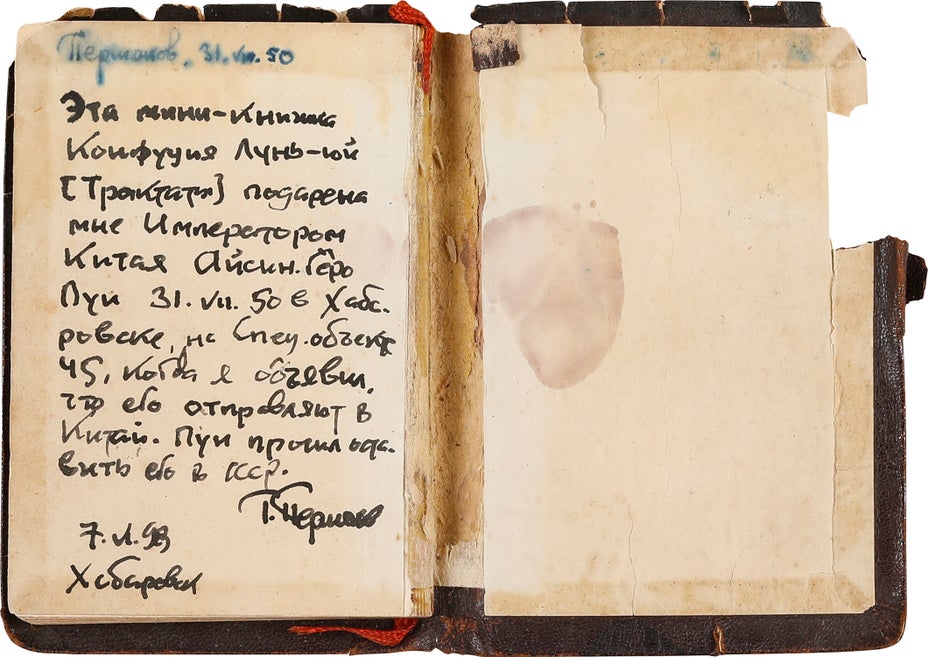 Пермяков, 31.VII.50
Эта мини-книжка
Конфуция Лунь-юй
[Трактаты] подарена
мне Императором
Китая Айсин-Гёро
Пуи 31.VII.50 в Хаба-
ровске, на Спец.объекте
45, когда я объявил,
что его отправляют в
Китай. Пуи просил оста-
вить его в СССР.
Г. Пермяков
7.VI.99
Хабаровск